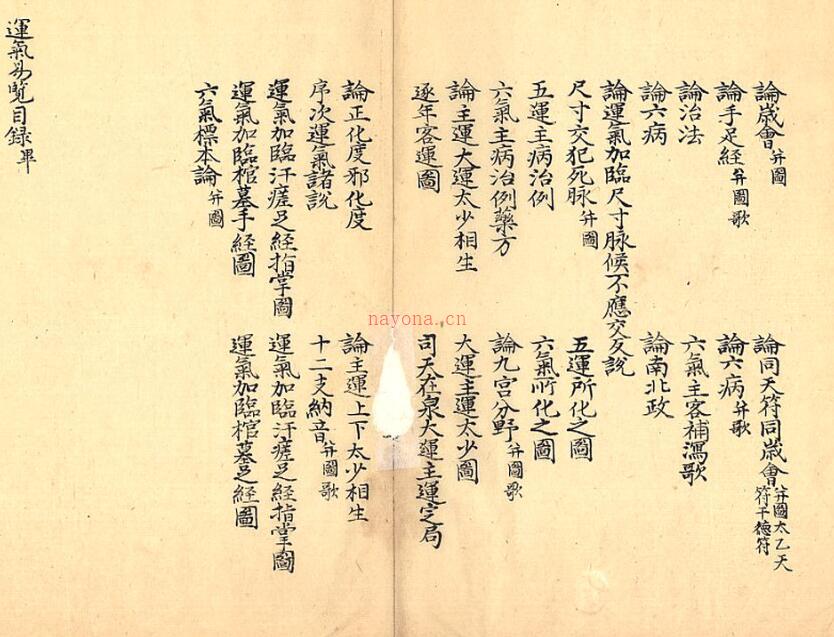 論歲會 并圖 論同天符同歲會 并圖太乙天符干德符
論手足経 并圖歌 論六病 并歌
論治法 六氣主客補瀉歌
論六病 論南北政
論運氣加臨尺寸脉候不應交反說
尺寸交犯死脉 并圖 五運所化之圖
五運主病治例 六氣所化之圖
六氣主病治例藥方 論九宮分野 并圖歌
論主運大運太少相生 大運主運太少圖
逐年客運圖 司天在泉大運主運定局
論正化度邪化度 論主運上下太少相生
序次運氣諸說 十二支納音 并圖歌
運氣加臨汗瘥足経指掌圖 運氣加臨汗瘥足経指掌圖
運氣加臨棺墓手経圖 運氣加臨棺墓足経圖
六氣標本論 并圖
運氣易覽目録畢
nayona.cn